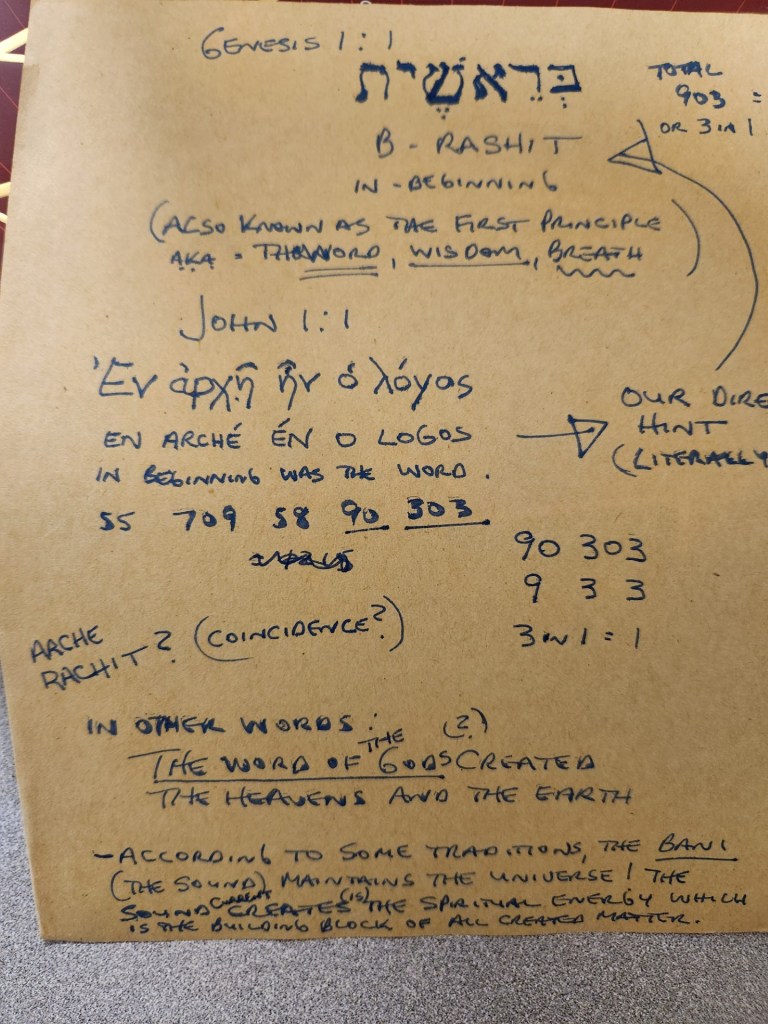 GENESIS 1:1
בְּרֵאשִׁית
TOTAL
903 =
OR 3 IN 1
B - RASHIT
IN - BEGINNING
(ALSO KNOWN AS THE FIRST PRINCIPLE
AKA = THE WORD, WISDOM, BREATH)
JOHN 1:1
Ἐν ἀρχῇ ἦν ὁ λόγος
EN ARCHÉ ÉN O LOGOS
IN BEGINNING WAS THE WORD.
55 709 58 90 303
OUR DIRE
HINT
(LITERALLY
90 303
9 3 3
3 IN 1 = 1
ARCHE
RACHIT? (COINCIDENCE?)
IN OTHER WORDS:
THE (?)
THE WORD OF GODS CREATED
THE HEAVENS AND THE EARTH
- ACCORDING TO SOME TRADITIONS, THE BANI
(THE SOUND) MAINTAINS THE UNIVERSE / THE
SOUND CURRENT CREATES (IS) THE SPIRITUAL ENERGY WHICH
IS THE BUILDING BLOCK OF ALL CREATED MATTER.